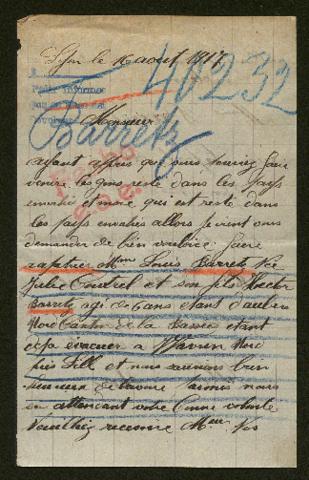 Lyon le 16 aout 1917
40232
Monsieur
Barretz
ayant appris que vous pouvez faire
venire les gens reste dans les pays
envahi et moie qui est reste dans
les pays envahies allors je vient vous
demander de bien vouloire faire
rapatrier Mme Louis Barretz Née
Julie et son fils Hector
Barretz agé de 6 ans etant d'
Nord Canton de la Bassée etant
evacuer a Wavrin Nord
près Lille et nous serions bien
heureux de l'avoire nous
en attendant votre bonne volonté
Veuillez recevoire Mr Vos